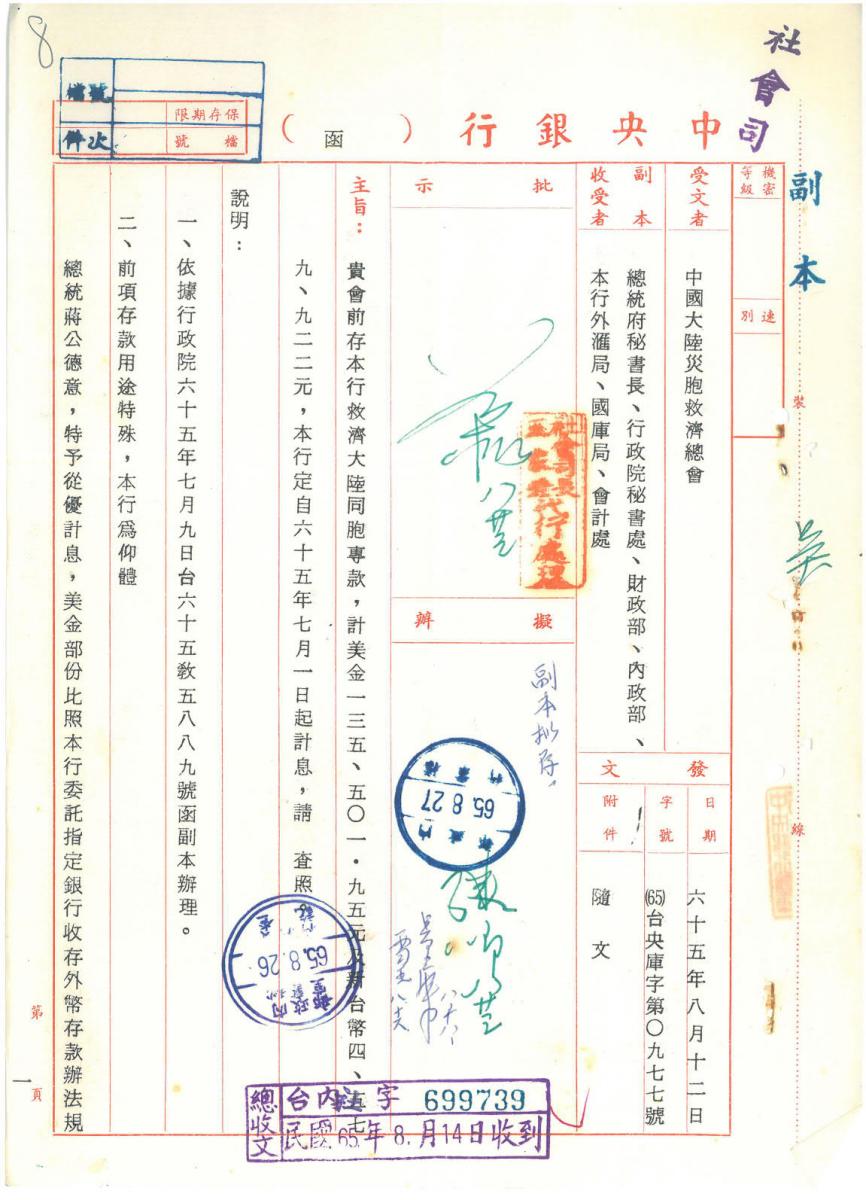 8
社會司
檔號
件次
保存期限
檔號
中央銀行（函）
副本
機密等級
速別
受文者
中國大陸災胞救濟總會
副本收受者
總統府秘書長、行政院秘書處、財政部、內政部、
本行外滙局、國庫局、會計處
發文
日期
六十五年八月十二日
字號
(65)台央庫字第〇九七七號
附件
隨文
批示
社會司長
代行處理
擬辦
副本拟存。
65.8.27
主旨：貴會前存本行救濟大陸同胞專款，計美金一三五、五〇一・九五元及新台幣四、五七
九、九二二元，本行定自六十五年七月一日起計息，請　查照。
65.8.26
說明：
一、依據行政院六十五年七月九日台六十五教五八八九號函副本辦理。
二、前項存款用途特殊，本行爲仰體
總統蔣公德意，特予從優計息，美金部份比照本行委託指定銀行收存外幣存款辦法規
總收文
台內社字 699739
民國65年8.月14日收到
裝
線
第一頁